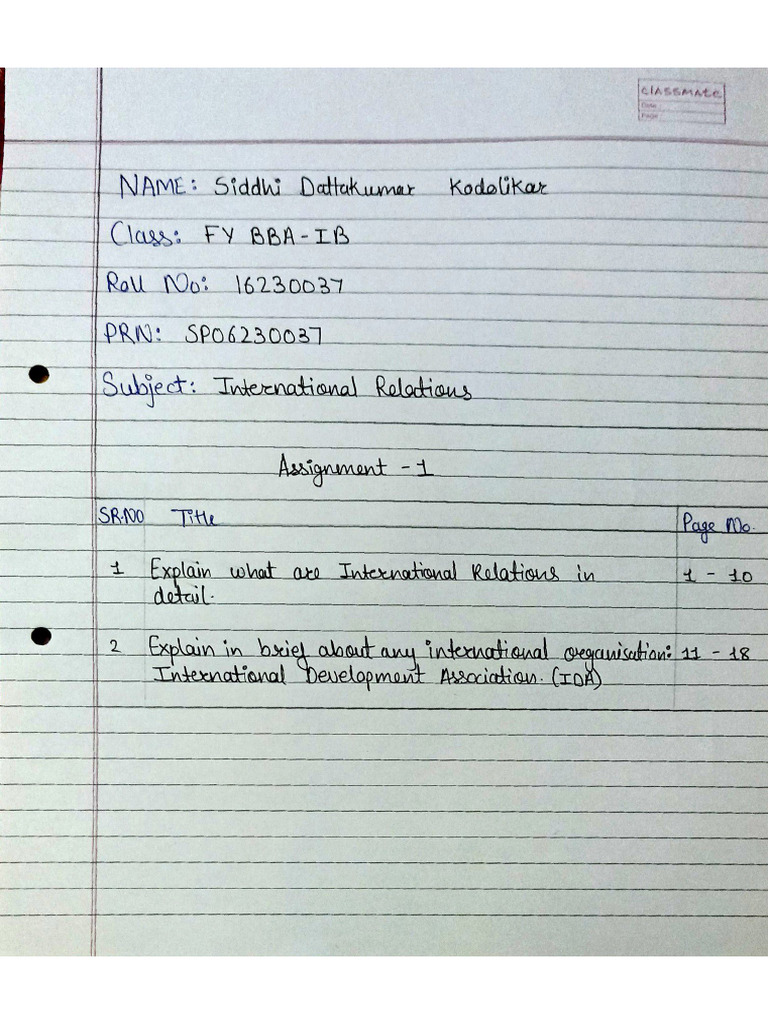 classmate
Date
Page
NAME: Siddhi Dattakumar Kodolikar
Class: FY BBA-IB
Roll No: 16230037
PRN: SP06230037
Subject: International Relations
Assignment - 1
SR.NO Title Page No.
1 Explain what are International Relations in 1 - 10
detail.
2 Explain in brief about any international organisation: 11 - 18
International Development Association. (IDA)